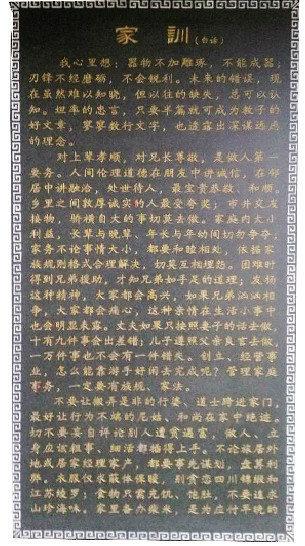 家训（白话）
我心里想：器物不加雕琢，不能成器；
刃锋不经磨砺，不会锐利。未来的错误，现
在虽然难以知晓，但以往的缺失，总可以认
知。坦率的忠言，只要半篇就可成为教子的
好文章，寥寥数行文字，也透露出深谋远虑
的理念。
对上辈孝顺，对兄长尊敬，是做人第一
要务。人间伦理道德在朋友中讲诚信，在邻
居中讲融洽，处世待人，最宝贵恭敬、和顺，
乡里之间敦厚诚实的人最受夸奖；市井交友
接物，骄横自大的事切莫去做。家庭内大小
利益，长辈与晚辈，年长与年幼间切勿争夺。
家务不论事情大小，都要和睦相处，依据家
族规则格式合理解决，切莫互相埋怨。困难时
得到兄弟援助，才知兄弟如手足的道理；发扬
这种精神，大家都会高兴，如果兄弟汹汹相
争，大家都会痛心，这种亲情在生活小事中
也会明显表露。丈夫如果只按照妻子的话去做，
十有九件事会出差错；儿子遵照父亲良言去做，
一万件事也不会有一件错失。创立、经营事
业，怎么能靠游手好闲去完成呢？管理家庭
事务，一定要有族规、家法。
不要让搬弄是非的行婆、道士跨近家门，
最好让行为不端的尼姑、和尚在家中绝迹。
切不要妄自评论别人遭贫遇富，做人、立
身应该粗事、细活都插得上手。不论族居外
地或居家经理家产，都要事先谋划，盘算利
弊。衣服仅求蔽体保暖，别贪恋四川锦缎和
江苏绫罗；食物只需充饥、饱肚，不要追求
山珍海味，家里备办粮米，是为应付年晚的